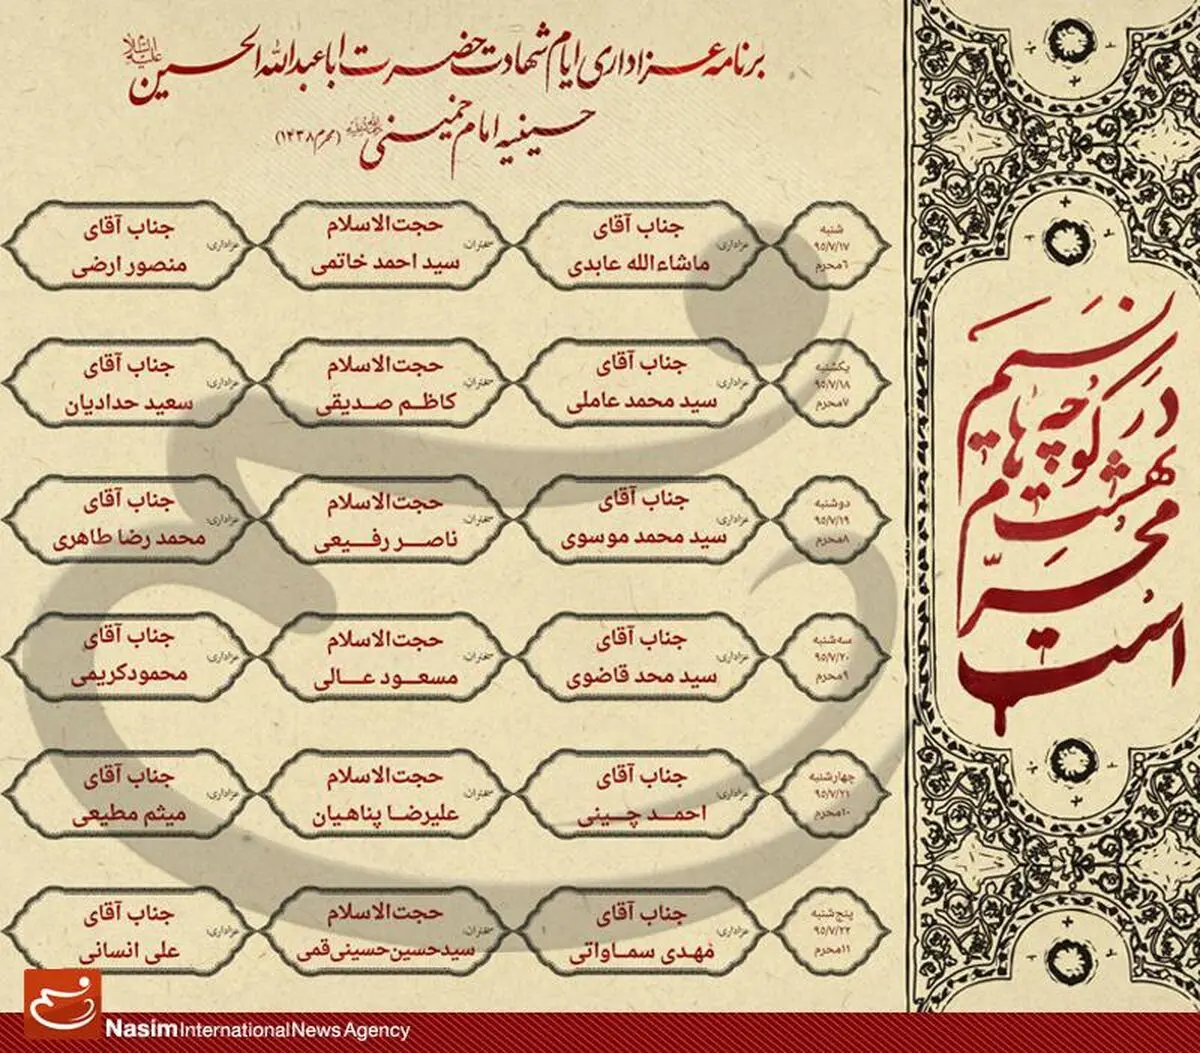 برنامه عزاداری ایام شهادت حضرت اباعبدالله الحسین علیه‌السلام
حسینیه امام خمینی (محرم ۱۴۳۸)
شنبه
۹۵/۷/۱۷
۶محرم
عزاداری:
جناب آقای
ماشاءالله عابدی
سخنران:
حجت‌الاسلام
سید احمد خاتمی
عزاداری:
جناب آقای
منصور ارضی
یکشنبه
۹۵/۷/۱۸
۷محرم
عزاداری:
جناب آقای
سید محمد عاملی
سخنران:
حجت‌الاسلام
کاظم صدیقی
عزاداری:
جناب آقای
سعید حدادیان
دوشنبه
۹۵/۷/۱۹
۸محرم
عزاداری:
جناب آقای
سید محمد موسوی
سخنران:
حجت‌الاسلام
ناصر رفیعی
عزاداری:
جناب آقای
محمد رضا طاهری
سه‌شنبه
۹۵/۷/۲۰
۹محرم
عزاداری:
جناب آقای
سید محد قاضوی
سخنران:
حجت‌الاسلام
مسعود عالی
عزاداری:
جناب آقای
محمودکریمی
چهارشنبه
۹۵/۷/۲۱
۱۰محرم
عزاداری:
جناب آقای
احمد چینی
سخنران:
حجت‌الاسلام
علیرضا پناهیان
عزاداری:
جناب آقای
میثم مطیعی
پنج‌شنبه
۹۵/۷/۲۲
۱۱محرم
عزاداری:
جناب آقای
مهدی سماواتی
سخنران:
حجت‌الاسلام
سیدحسین‌حسینی‌قمی
عزاداری:
جناب آقای
علی انسانی
نسیم
در کوچه‌های
بهشت
محرّم
است
Nasim International News Agency